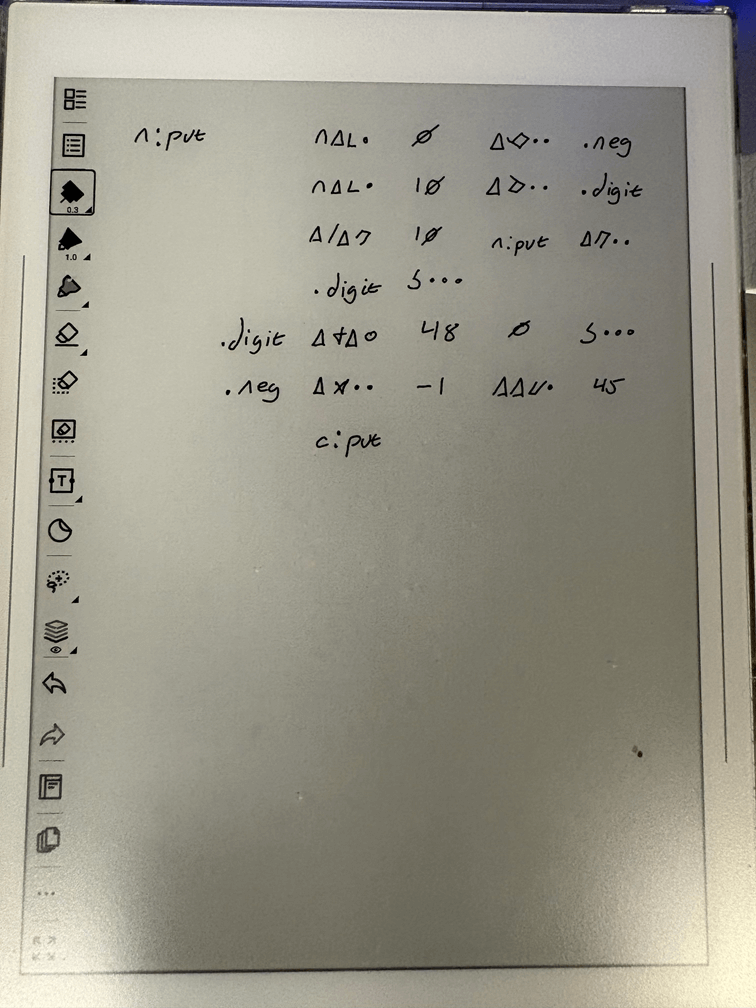 n:put ∩ΔL• Ø Δ◇•• .neg
∩ΔL• 1Ø Δ⊃•• .digit
Δ/Δ7 1Ø n:put Δ7••
.digit S•••
.digit Δ+Δo 48 Ø S•••
.neg Δ×•• -1 ΔΔ•• 45
c:put
0.3
1.0
T